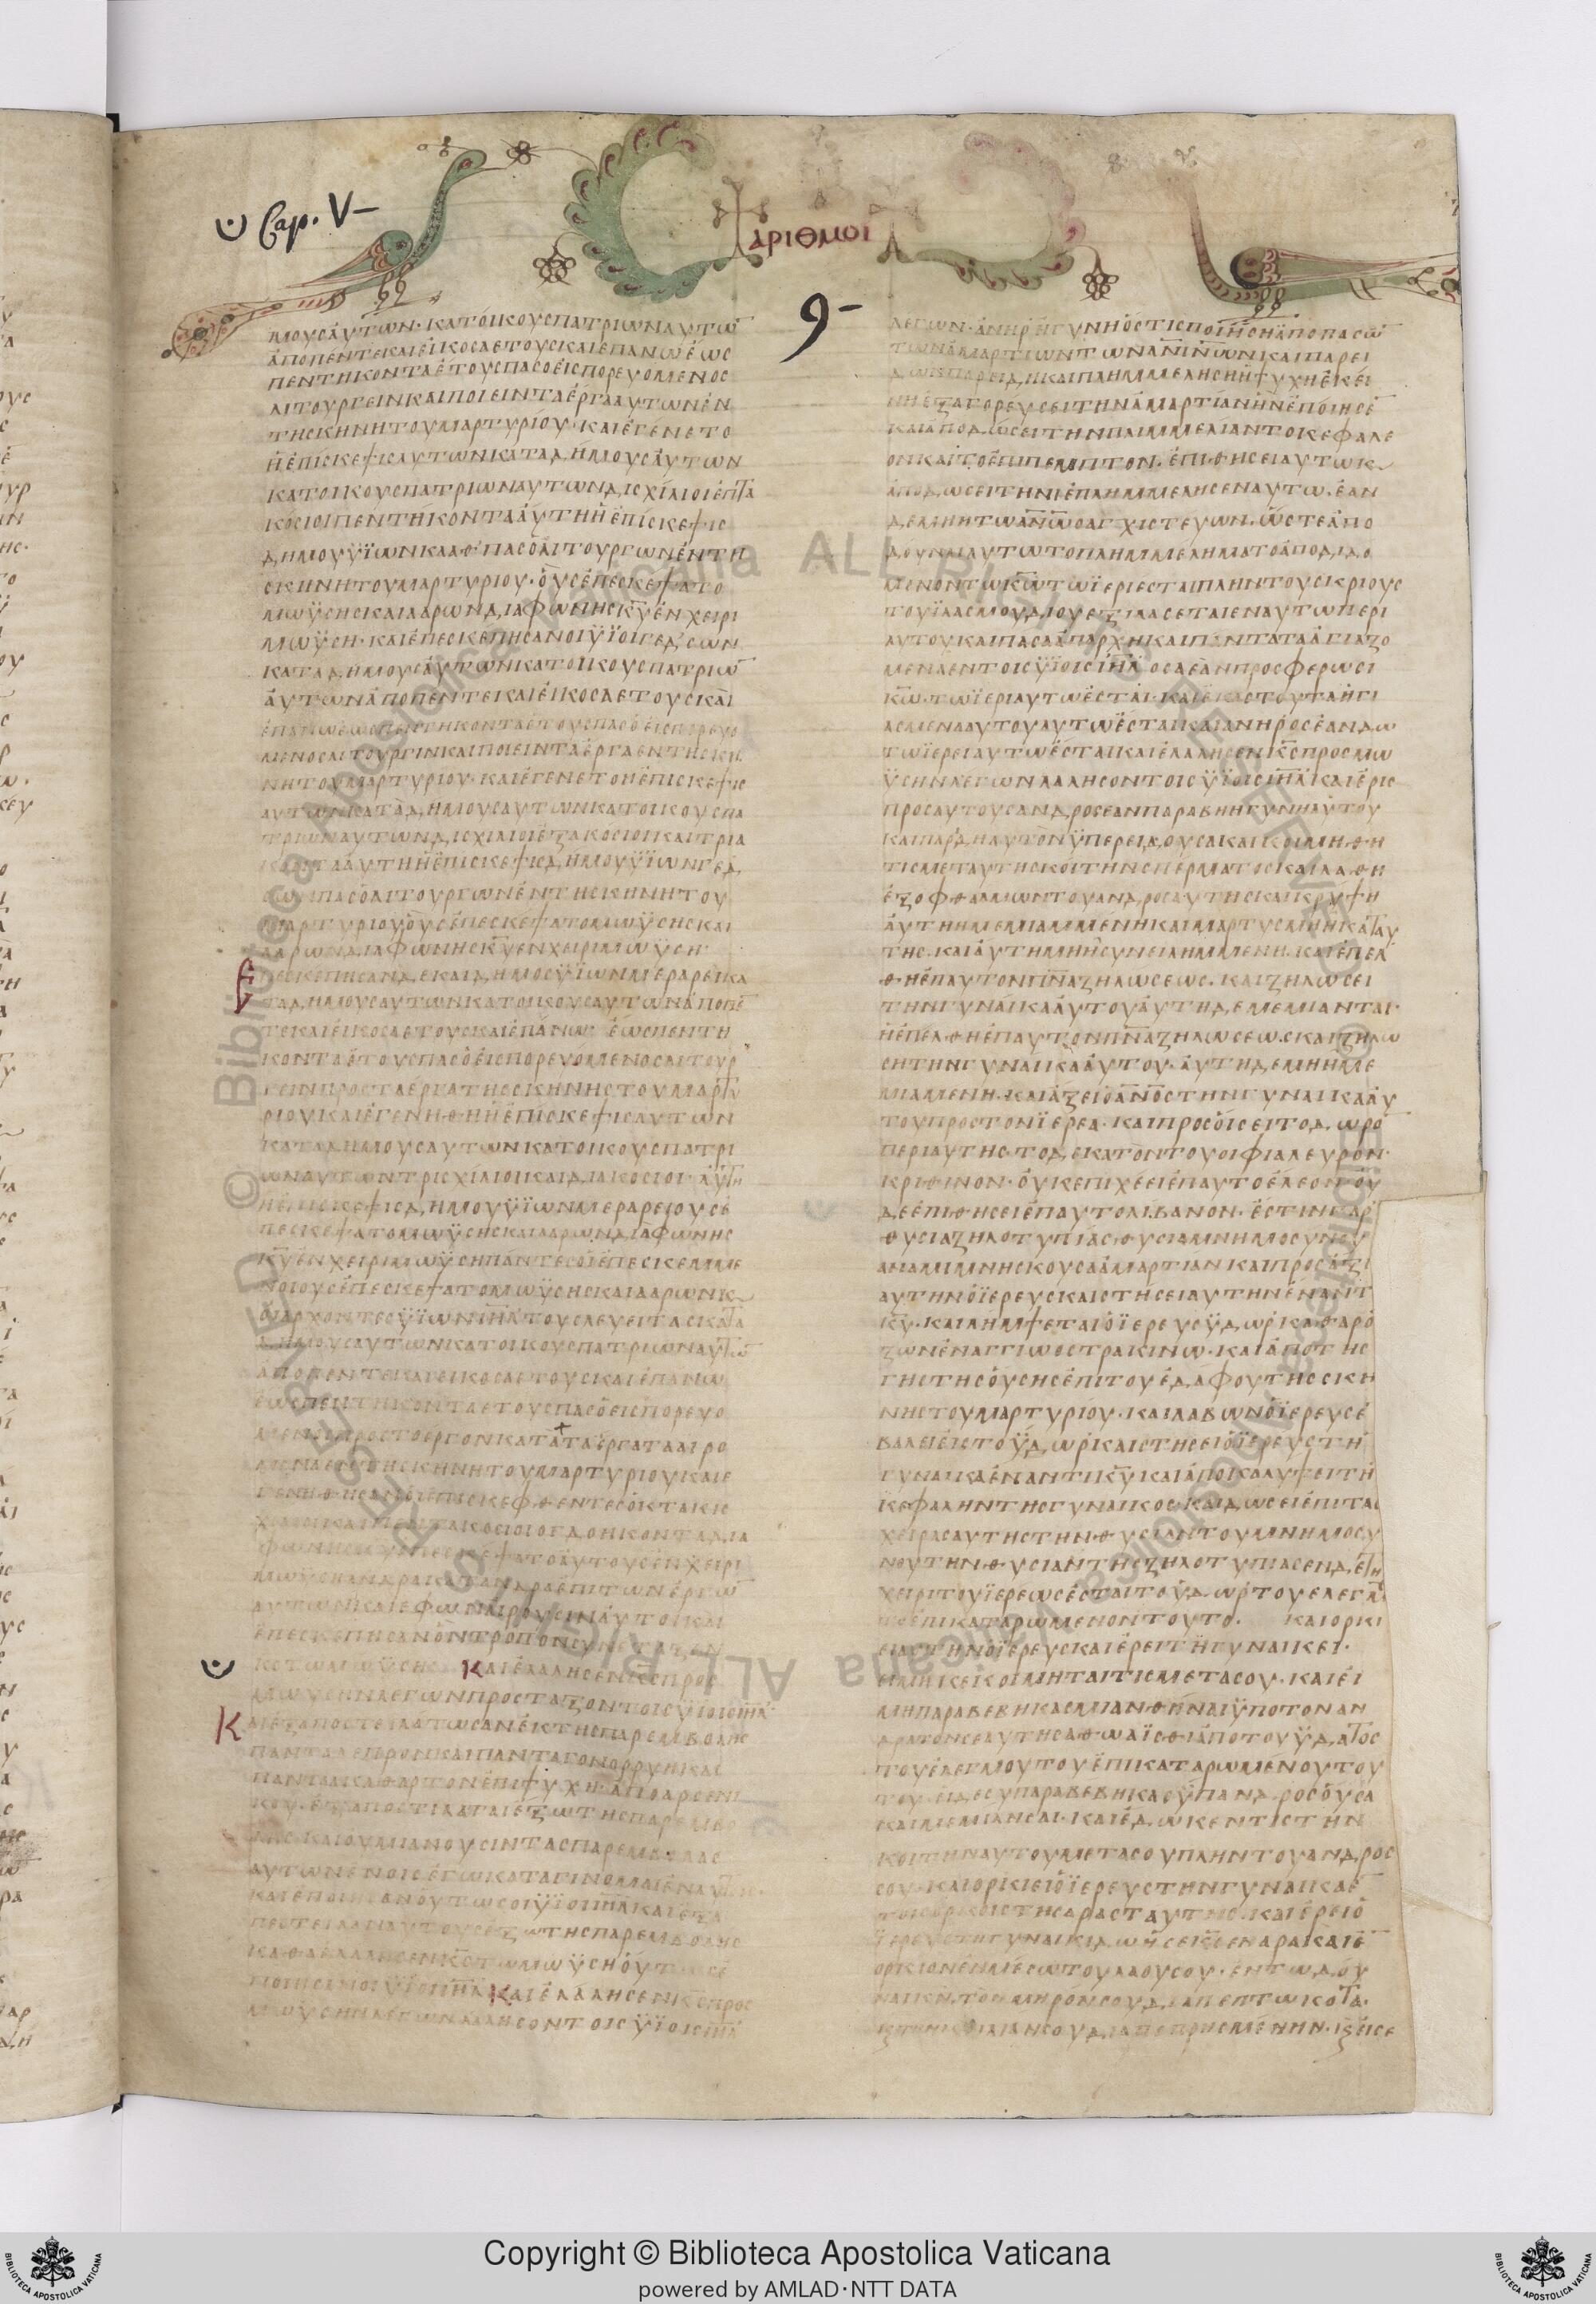 Cap. V
ΑΡΙΘΜΟΙ
9
ΜΟΥΣ ΑΥΤΩΝ · ΚΑΤ ΟΙΚΟΥΣ ΠΑΤΡΙΩΝ ΑΥΤΩ̅
ΑΠΟ ΠΕΝΤΕ ΚΑΙ ΕΙΚΟΣΑΕΤΟΥΣ ΚΑΙ ΕΠΑΝΩ ΕΩΣ
ΠΕΝΤΗΚΟΝΤΑΕΤΟΥΣ ΠΑΣ Ο ΕΙΣΠΟΡΕΥΟΜΕΝΟΣ
ΛΙΤΟΥΡΓΕΙΝ ΚΑΙ ΠΟΙΕΙΝ ΤΑ ΕΡΓΑ ΑΥΤΩΝ ΕΝ
ΤΗ ΣΚΗΝΗ ΤΟΥ ΜΑΡΤΥΡΙΟΥ · ΚΑΙ ΕΓΕΝΕΤΟ
Η ΕΠΙΣΚΕΨΙΣ ΑΥΤΩΝ ΚΑΤΑ ΔΗΜΟΥΣ ΑΥΤΩΝ
ΚΑΤ ΟΙΚΟΥΣ ΠΑΤΡΙΩΝ ΑΥΤΩΝ ΔΙΣΧΙΛΙΟΙ ΕΠΤΑ
ΚΟΣΙΟΙ ΠΕΝΤΗΚΟΝΤΑ ΑΥΤΗ Η ΕΠΙΣΚΕΨΙΣ
ΔΗΜΟΥ ΥΪΩΝ ΚΑΑΘ ΠΑΣ Ο ΛΙΤΟΥΡΓΩΝ ΕΝ ΤΗ
ΣΚΗΝΗ ΤΟΥ ΜΑΡΤΥΡΙΟΥ · ΟΥΣ ΕΠΕΣΚΕΨΑΤΟ
ΜΩΫΣΗΣ ΚΑΙ ΑΑΡΩΝ ΔΙΑ ΦΩΝΗΣ Κ̅Υ̅ ΕΝ ΧΕΙΡΙ
ΜΩΫΣΗ · ΚΑΙ ΕΠΕΣΚΕΠΗΣΑΝ ΟΙ ΥΪΟΙ ΓΕΔΣΩΝ
ΚΑΤΑ ΔΗΜΟΥΣ ΑΥΤΩΝ ΚΑΤ ΟΙΚΟΥΣ ΠΑΤΡΙΩ̅
ΑΥΤΩΝ ΑΠΟ ΠΕΝΤΕ ΚΑΙ ΕΙΚΟΣΑΕΤΟΥΣ ΚΑΙ
ΕΠΑΝΩ ΕΩΣ ΠΕΝΤΗΚΟΝΤΑΕΤΟΥΣ ΠΑΣ Ο ΕΙΣΠΟΡΕΥΟ
ΜΕΝΟΣ ΛΙΤΟΥΡΓΙΝ ΚΑΙ ΠΟΙΕΙΝ ΤΑ ΕΡΓΑ ΕΝ ΤΗ ΣΚΗ
ΝΗ ΤΟΥ ΜΑΡΤΥΡΙΟΥ · ΚΑΙ ΕΓΕΝΕΤΟ Η ΕΠΙΣΚΕΨΙΣ
ΑΥΤΩΝ ΚΑΤΑ ΔΗΜΟΥΣ ΑΥΤΩΝ ΚΑΤ ΟΙΚΟΥΣ ΠΑ
ΤΡΙΩΝ ΑΥΤΩΝ ΔΙΣΧΙΛΙΟΙ ΕΞΑΚΟΣΙΟΙ ΚΑΙ ΤΡΙΑ
ΚΟΝΤΑ ΑΥΤΗ Η ΕΠΙΣΚΕΨΙΣ ΔΗΜΟΥ ΥΪΩΝ ΓΕΔ
ΣΩΝ ΠΑΣ Ο ΛΙΤΟΥΡΓΩΝ ΕΝ ΤΗ ΣΚΗΝΗ ΤΟΥ
ΜΑΡΤΥΡΙΟΥ ΟΥΣ ΕΠΕΣΚΕΨΑΤΟ ΜΩΫΣΗΣ ΚΑΙ
ΑΑΡΩΝ ΔΙΑ ΦΩΝΗΣ Κ̅Υ̅ ΕΝ ΧΕΙΡΙ ΜΩΫΣΗ ·
ΕΠΕΣΚΕΠΗΣΑΝ ΔΕ ΚΑΙ ΔΗΜΟΣ ΥΪΩΝ ΜΕΡΑΡΕΙ ΚΑ
ΤΑ ΔΗΜΟΥΣ ΑΥΤΩΝ ΚΑΤ ΟΙΚΟΥΣ ΑΥΤΩΝ ΑΠΟ ΠΕ̅
ΤΕ ΚΑΙ ΕΙΚΟΣΑΕΤΟΥΣ ΚΑΙ ΕΠΑΝΩ ΕΩΣ ΠΕΝΤΗ
ΚΟΝΤΑΕΤΟΥΣ ΠΑΣ Ο ΕΙΣΠΟΡΕΥΟΜΕΝΟΣ ΛΙΤΟΥΡ
ΓΕΙΝ ΠΡΟΣ ΤΑ ΕΡΓΑ ΤΗΣ ΣΚΗΝΗΣ ΤΟΥ ΜΑΡΤΥ
ΡΙΟΥ ΚΑΙ ΕΓΕΝΗΘΗ Η ΕΠΙΣΚΕΨΙΣ ΑΥΤΩΝ
ΚΑΤΑ ΔΗΜΟΥΣ ΑΥΤΩΝ ΚΑΤ ΟΙΚΟΥΣ ΠΑΤΡΙ
ΩΝ ΑΥΤΩΝ ΤΡΙΣΧΙΛΙΟΙ ΚΑΙ ΔΙΑΚΟΣΙΟΙ · ΑΥΤΗ
Η ΕΠΙΣΚΕΨΙΣ ΔΗΜΟΥ ΥΪΩΝ ΜΕΡΑΡΕΙ ΟΥΣ Ε
ΠΕΣΚΕΨΑΤΟ ΜΩΫΣΗΣ ΚΑΙ ΑΑΡΩΝ ΔΙΑ ΦΩΝΗΣ
Κ̅Υ̅ ΕΝ ΧΕΙΡΙ ΜΩΫΣΗ ΠΑΝΤΕΣ ΟΙ ΕΠΕΣΚΕΜΜΕ
ΝΟΙ ΟΥΣ ΕΠΕΣΚΕΨΑΤΟ ΜΩΫΣΗΣ ΚΑΙ ΑΑΡΩΝ Κ
ΟΙ ΑΡΧΟΝΤΕΣ ΥΪΩΝ Ι̅Η̅Λ̅ ΤΟΥΣ ΛΕΥΕΙΤΑΣ ΚΑΤΑ
ΔΗΜΟΥΣ ΑΥΤΩΝ ΚΑΤ ΟΙΚΟΥΣ ΠΑΤΡΙΩΝ ΑΥΤΩ̅
ΑΠΟ ΠΕΝΤΕ ΚΑΙ ΕΙΚΟΣΑΕΤΟΥΣ ΚΑΙ ΕΠΑΝΩ
ΕΩΣ ΠΕΝΤΗΚΟΝΤΑΕΤΟΥΣ ΠΑΣ Ο ΕΙΣΠΟΡΕΥΟ
ΜΕΝΟΣ ΠΡΟΣ ΤΟ ΕΡΓΟΝ ΚΑΤΑ ΤΑ ΕΡΓΑ ΤΑ ΑΙΡΟ
ΜΕΝΑ ΕΝ ΤΗ ΣΚΗΝΗ ΤΟΥ ΜΑΡΤΥΡΙΟΥ ΚΑΙ Ε
ΓΕΝΗΘΗΣΑΝ ΟΙ ΕΠΙΣΚΕΦΘΕΝΤΕΣ ΟΚΤΑΚΙΣ
ΧΙΛΙΟΙ ΚΑΙ ΠΕΝΤΑΚΟΣΙΟΙ ΟΓΔΟΗΚΟΝΤΑ ΔΙΑ
ΦΩΝΗΣ Κ̅Υ̅ ΕΠΕΣΚΕΨΑΤΟ ΑΥΤΟΥΣ ΕΝ ΧΕΙΡΙ
ΜΩΫΣΗ ΑΝΔΡΑ ΚΑΤ ΑΝΔΡΑ ΕΠΙ ΤΩΝ ΕΡΓΩ̅
ΑΥΤΩΝ ΚΑΙ ΕΦ ΩΝ ΑΙΡΟΥΣΙΝ ΑΥΤΟΙ ΚΑΙ
ΕΠΕΣΚΕΠΗΣΑΝ ΟΝ ΤΡΟΠΟΝ ΣΥΝΕΤΑΞΕΝ
Κ̅Σ̅ ΤΩ ΜΩΫΣΗ ΚΑΙ ΕΛΑΛΗΣΕΝ Κ̅Σ̅ ΠΡΟΣ
ΜΩΫΣΗΝ ΛΕΓΩΝ ΠΡΟΣΤΑΞΟΝ ΤΟΙΣ ΥΪΟΙΣ Ι̅Η̅Λ̅
Κ ΕΞΑΠΟΣΤΕΙΛΑΤΩΣΑΝ ΕΚ ΤΗΣ ΠΑΡΕΜΒΟΛΗΣ
ΠΑΝΤΑ ΛΕΠΡΟΝ ΚΑΙ ΠΑΝΤΑ ΓΟΝΟΡΡΥΗ ΚΑΙ
ΠΑΝΤΑ ΑΚΑΘΑΡΤΟΝ ΕΠΙ ΨΥΧΗ · ΑΠΟ ΑΡΣΕΝΙ
ΚΟΥ ΕΞΑΠΟΣΤΙΛΑΤΑΙ ΕΞΩ ΤΗΣ ΠΑΡΕΜΒΟ
ΛΗΣ ΚΑΙ ΟΥ ΜΙΑΝΟΥΣΙΝ ΤΑΣ ΠΑΡΕΜΒΟΛΑΣ
ΑΥΤΩΝ ΕΝ ΟΙΣ ΕΓΩ ΚΑΤΑΓΙΝΟΜΑΙ ΕΝ ΑΥ
ΚΑΙ ΕΠΟΙΗΣΑΝ ΟΥΤΩΣ ΟΙ ΥΪΟΙ Ι̅Η̅Λ̅ ΚΑΙ ΕΞΑ
ΠΕΣΤΕΙΛΑΝ ΑΥΤΟΥΣ ΕΞΩ ΤΗΣ ΠΑΡΕΜΒΟΛΗΣ
ΚΑΘΑ ΕΛΑΛΗΣΕΝ Κ̅Σ̅ ΤΩ ΜΩΫΣΗ ΟΥΤΩΣ Ε
ΠΟΙΗΣΑΝ ΟΙ ΥΪΟΙ Ι̅Η̅Λ̅ ΚΑΙ ΕΛΑΛΗΣΕΝ Κ̅Σ̅ ΠΡΟΣ
ΜΩΫΣΗΝ ΛΕΓΩΝ ΛΑΛΗΣΟΝ ΤΟΙΣ ΥΪΟΙΣ Ι̅Η̅Λ̅
ΛΕΓΩΝ · ΑΝΗΡ Η ΓΥΝΗ ΟΣΤΙΣ ΠΟΙΗΣΗ ΑΠΟ ΠΑΣΩ̅
ΤΩΝ ΑΜΑΡΤΙΩΝ ΤΩΝ Α̅Ν̅Ι̅Ν̅ΩΝ ΚΑΙ ΠΑΡΕΙ
ΔΩΝ ΠΑΡΕΙΔΗ ΚΑΙ ΠΛΗΜΜΕΛΗΣΗ Η ΨΥΧΗ ΕΚΕΙ
ΝΗ ΕΞΑΓΟΡΕΥΣΕΙ ΤΗΝ ΑΜΑΡΤΙΑΝ ΗΝ ΕΠΟΙΗΣΕ̅
ΚΑΙ ΑΠΟΔΩΣΕΙ ΤΗΝ ΠΛΙΜΜΕΛΙΑΝ ΤΟ ΚΕΦΑΛΕ
ΟΝ ΚΑΙ ΤΟ ΕΠΙΠΕΜΠΤΟΝ · ΕΠΙΘΗΣΕΙ ΑΥΤΩ Κ
ΑΠΟΔΩΣΕΙ ΤΗΝΙ ΕΠΛΗΜΜΕΛΗΣΕΝ ΑΥΤΩ · ΕΑΝ
ΔΕ ΜΗ Η ΤΩ Α̅Ν̅Ω̅ Ο ΑΓΧΙΣΤΕΥΩΝ · ΩΣΤΕ ΑΠΟ
ΔΟΥΝΑΙ ΑΥΤΩ ΤΟ ΠΛΗΜΜΕΛΗΜΑ ΤΟ ΑΠΟΔΙΔΟ
ΜΕΝΟΝ ΤΩ Κ̅Ω̅ ΤΩ ΪΕΡΙ ΕΣΤΑΙ ΠΛΗΝ ΤΟΥΣ ΚΡΙΟΥΣ
ΤΟΥ ΪΛΑΣΜΟΥ ΔΙ ΟΥ ΕΞΙΛΑΣΕΤΑΙ ΕΝ ΑΥΤΩ ΠΕΡΙ
ΑΥΤΟΥ ΚΑΙ ΠΑΣΑ ΑΠΑΡΧΗ ΚΑΙ ΠΑΝΤΑ ΤΑ ΑΓΙΑΖΟ
ΜΕΝΑ ΕΝ ΤΟΙΣ ΥΪΟΙΣ Ι̅Η̅Λ̅ ΟΣΑ ΕΑΝ ΠΡΟΣΦΕΡΩΣΙ
Κ̅Ω̅ · ΤΩ ΪΕΡΙ ΑΥΤΩ ΕΣΤΑΙ · ΚΑΙ ΕΚΑΣΤΟΥ ΤΑ ΗΓΙ
ΑΣΜΕΝΑ ΑΥΤΟΥ ΑΥΤΩ ΕΣΤΑΙ ΚΑΙ ΑΝΗΡ ΟΣ ΕΑΝ ΔΩ
ΤΩ ΪΕΡΕΙ ΑΥΤΩ ΕΣΤΑΙ ΚΑΙ ΕΛΑΛΗΣΕΝ Κ̅Σ̅ ΠΡΟΣ ΜΩ
ΫΣΗΝ ΛΕΓΩΝ ΛΑΛΗΣΟΝ ΤΟΙΣ ΥΪΟΙΣ Ι̅Η̅Λ̅ ΚΑΙ ΕΡΙΣ
ΠΡΟΣ ΑΥΤΟΥΣ ΑΝΔΡΟΣ ΕΑΝ ΠΑΡΑΒΗ Η ΓΥΝΗ ΑΥΤΟΥ
ΚΑΙ ΠΑΡΙΔΗ ΑΥΤΟΝ ΥΠΕΡΕΙΔΟΥΣΑ ΚΑΙ ΚΟΙΜΗΘΗ
ΤΙΣ ΜΕΤ ΑΥΤΗΣ ΚΟΙΤΗΝ ΣΠΕΡΜΑΤΟΣ ΚΑΙ ΛΑΘΗ
ΕΞ ΟΦΘΑΛΜΩΝ ΤΟΥ ΑΝΔΡΟΣ ΑΥΤΗΣ ΚΑΙ ΚΡΥΨΗ
ΑΥΤΗ ΜΕΜΙΑΜΜΕΝΗ ΚΑΙ ΜΑΡΤΥΣ ΜΗ Η ΚΑΤ ΑΥ
ΤΗΣ · ΚΑΙ ΑΥΤΗ ΜΗ Η ΣΥΝΕΙΛΗΜΜΕΝΗ · ΚΑΙ ΕΠΕΛ
ΘΗ ΕΠ ΑΥΤΟΝ Π̅Ν̅Α̅ ΖΗΛΩΣΕΩΣ · ΚΑΙ ΖΗΛΩΣΕΙ
ΤΗΝ ΓΥΝΑΙΚΑ ΑΥΤΟΥ ΑΥΤΗ ΔΕ ΜΕΜΙΑΝΤΑΙ ·
Η ΕΠΕΛΘΗ ΕΠ ΑΥΤΟΝ Π̅Ν̅Α̅ ΖΗΛΩΣΕΩΣ ΚΑΙ ΖΗΛΩ
ΣΗ ΤΗΝ ΓΥΝΑΙΚΑ ΑΥΤΟΥ · ΑΥΤΗ ΔΕ ΜΗ Η ΜΕ
ΜΙΑΜΕΝΗ · ΚΑΙ ΑΞΕΙ Ο Α̅Ν̅Ο̅Σ̅ ΤΗΝ ΓΥΝΑΙΚΑ ΑΥ
ΤΟΥ ΠΡΟΣ ΤΟΝ ΪΕΡΕΑ · ΚΑΙ ΠΡΟΣΟΙΣΕΙ ΤΟ ΔΩΡΟ̅
ΠΕΡΙ ΑΥΤΗΣ · ΤΟ ΔΕΚΑΤΟΝ ΤΟΥ ΟΙΦΙ ΑΛΕΥΡΟΝ ·
ΚΡΙΘΙΝΟΝ · ΟΥΚ ΕΠΙΧΕΕΙ ΕΠ ΑΥΤΟ ΕΛΕΟΝ ΟΥ
ΔΕ ΕΠΙΘΗΣΕΙ ΕΠ ΑΥΤΟ ΛΙΒΑΝΟΝ · ΕΣΤΙΝ ΓΑΡ
ΘΥΣΙΑ ΖΗΛΟΤΥΠΙΑΣ · ΘΥΣΙΑ ΜΝΗΜΟΣΥΝΟΥ
ΑΝΑΜΙΜΝΗΣΚΟΥΣΑ ΑΜΑΡΤΙΑΝ ΚΑΙ ΠΡΟΣΑΞΙ
ΑΥΤΗΝ Ο ΪΕΡΕΥΣ ΚΑΙ ΣΤΗΣΕΙ ΑΥΤΗΝ ΕΝΑΝΤΙ
Κ̅Υ̅ · ΚΑΙ ΛΗΜΨΕΤΑΙ Ο ΪΕΡΕΥΣ ΥΔΩΡ ΚΑΘΑΡΟ̅
ΖΩΝ ΕΝ ΑΓΓΙΩ ΟΣΤΡΑΚΙΝΩ · ΚΑΙ ΑΠΟ ΤΗΣ
ΓΗΣ ΤΗΣ ΟΥΣΗΣ ΕΠΙ ΤΟΥ ΕΔΑΦΟΥ ΤΗΣ ΣΚΗ
ΝΗΣ ΤΟΥ ΜΑΡΤΥΡΙΟΥ · ΚΑΙ ΛΑΒΩΝ Ο ΪΕΡΕΥΣ Ε
ΒΑΛΕΙ ΕΙΣ ΤΟ ΥΔΩΡ ΚΑΙ ΣΤΗΣΕΙ Ο ΪΕΡΕΥΣ ΤΗ̅
ΓΥΝΑΙΚΑ ΕΝΑΝΤΙ Κ̅Υ̅ ΚΑΙ ΑΠΟΚΑΛΥΨΕΙ ΤΗ̅
ΚΕΦΑΛΗΝ ΤΗΣ ΓΥΝΑΙΚΟΣ · ΚΑΙ ΔΩΣΕΙ ΕΠΙ ΤΑΣ
ΧΕΙΡΑΣ ΑΥΤΗΣ ΤΗΝ ΘΥΣΙΑΝ ΤΟΥ ΜΝΗΜΟΣΥ
ΝΟΥ ΤΗΝ ΘΥΣΙΑΝ ΤΗΣ ΖΗΛΟΤΥΠΙΑΣ ΕΝ ΔΕ ΤΗ
ΧΕΙΡΙ ΤΟΥ ΪΕΡΕΩΣ ΕΣΤΑΙ ΤΟ ΥΔΩΡ ΤΟΥ ΕΛΕΓΜ
ΕΠΙΚΑΤΑΡΩΜΕΝΟΝ ΤΟΥΤΟ · ΚΑΙ ΟΡΚΙ
ΕΙ ΑΥΤΗΝ Ο ΪΕΡΕΥΣ ΚΑΙ ΕΡΕΙ ΤΗ ΓΥΝΑΙΚΕΙ ·
ΕΙ ΜΗ ΚΕΚΟΙΜΗΤΑΙ ΤΙΣ ΜΕΤΑ ΣΟΥ · ΚΑΙ ΕΙ
ΜΗ ΠΑΡΑΒΕΒΗΚΑΣ ΜΙΑΝΘΗΝΑΙ ΥΠΟ ΤΟΝ ΑΝ
ΔΡΑ ΤΟΝ ΣΕΑΥΤΗΣ ΑΘΩΑ ΪΣΘΙ ΑΠΟ ΤΟΥ ΥΔΑΤΟΣ
ΤΟΥ ΕΛΕΓΜΟΥ ΤΟΥ ΕΠΙΚΑΤΑΡΩΜΕΝΟΥ ΤΟΥ
ΤΟΥ · ΕΙ ΔΕ ΣΥ ΠΑΡΑΒΕΒΗΚΑΣ ΥΠΑΝΔΡΟΣ ΟΥΣΑ
ΚΑΙ ΜΕΜΙΑΝΣΑΙ · ΚΑΙ ΕΔΩΚΕΝ ΤΙΣ ΤΗΝ
ΚΟΙΤΗΝ ΑΥΤΟΥ ΜΕΤΑ ΣΟΥ ΠΛΗΝ ΤΟΥ ΑΝΔΡΟΣ
ΣΟΥ · ΚΑΙ ΟΡΚΙΕΙ Ο ΪΕΡΕΥΣ ΤΗΝ ΓΥΝΑΙΚΑ Ε̅
ΤΟΙΣ ΟΡΚΟΙΣ ΤΗΣ ΑΡΑΣ ΤΑΥΤΗΣ · ΚΑΙ ΕΡΕΙ Ο
ΪΕΡΕΥΣ ΤΗ ΓΥΝΑΙΚΙ ΔΩΗ ΣΕ Κ̅Σ̅ ΕΝ ΑΡΑ ΚΑΙ Ε̅
ΟΡΚΙΟΝ ΕΝ ΜΕΣΩ ΤΟΥ ΛΑΟΥ ΣΟΥ · ΕΝ ΤΩ ΔΟΥ
ΝΑΙ Κ̅Ν̅ ΤΟΝ ΜΗΡΟΝ ΣΟΥ ΔΙΑΠΕΠΤΩΚΟΤΑ ·
Κ ΤΗΝ ΚΟΙΛΙΑΝ ΣΟΥ ΔΙΑΠΕΠΡΗΣΜΕΝΗΝ · Κ ΕΙΣΕ
Copyright © Biblioteca Apostolica Vaticana
powered by AMLAD·NTT DATA